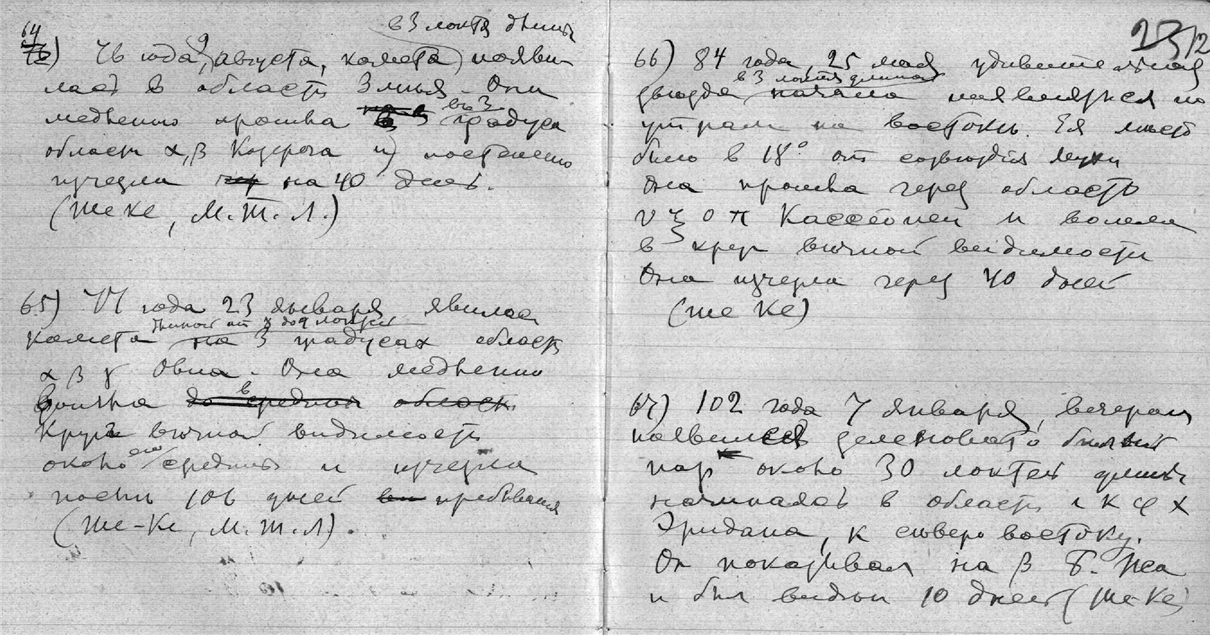 в 3 локтя длины
64) 76 года, 9 августа, комета появи
лась в области Змеи. Она
медленно прошла на 3 градуса
области α, β Козерога и постепенно
изчезла на 40 день.
(Ше Ке, М.Т.Л.)
65) 77 года 23 января явилась
длиной от 8 до 9 локтей
комета на 3 градусах област
α β γ Овна. Она медленно
вошла до в средней област.
Круга вечной видимости
около его средины и изчезла
после 106 дней пребывания
(Ше-Ке, М.Т.Л).
2312
66) 84 года, 25 мая удивительная
в 3 локтя длиной
звезда начала появляться по
утрам на востоке. Ея место
было в 18° от созвездия Мухи
Она прошла через область
ν ξ ο π Кассиопеи и вошла
в круг вечной видимости
Она изчезла через 40 дней
(Ше Ке)
67) 102 года 7 января, вечером
появился зеленовато белый
пар около 30 локтей длины
начинаясь в области ι κ φ χ
Эридана, к северо востоку.
Он показывал на β Б. Пса
и был виден 10 дней (Ше Ке)